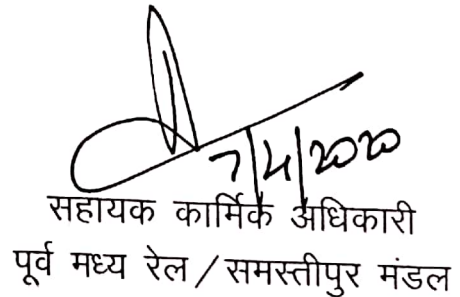 7/4/2020
सहायक कार्मिक अधिकारी
पूर्व मध्य रेल/समस्तीपुर मंडल